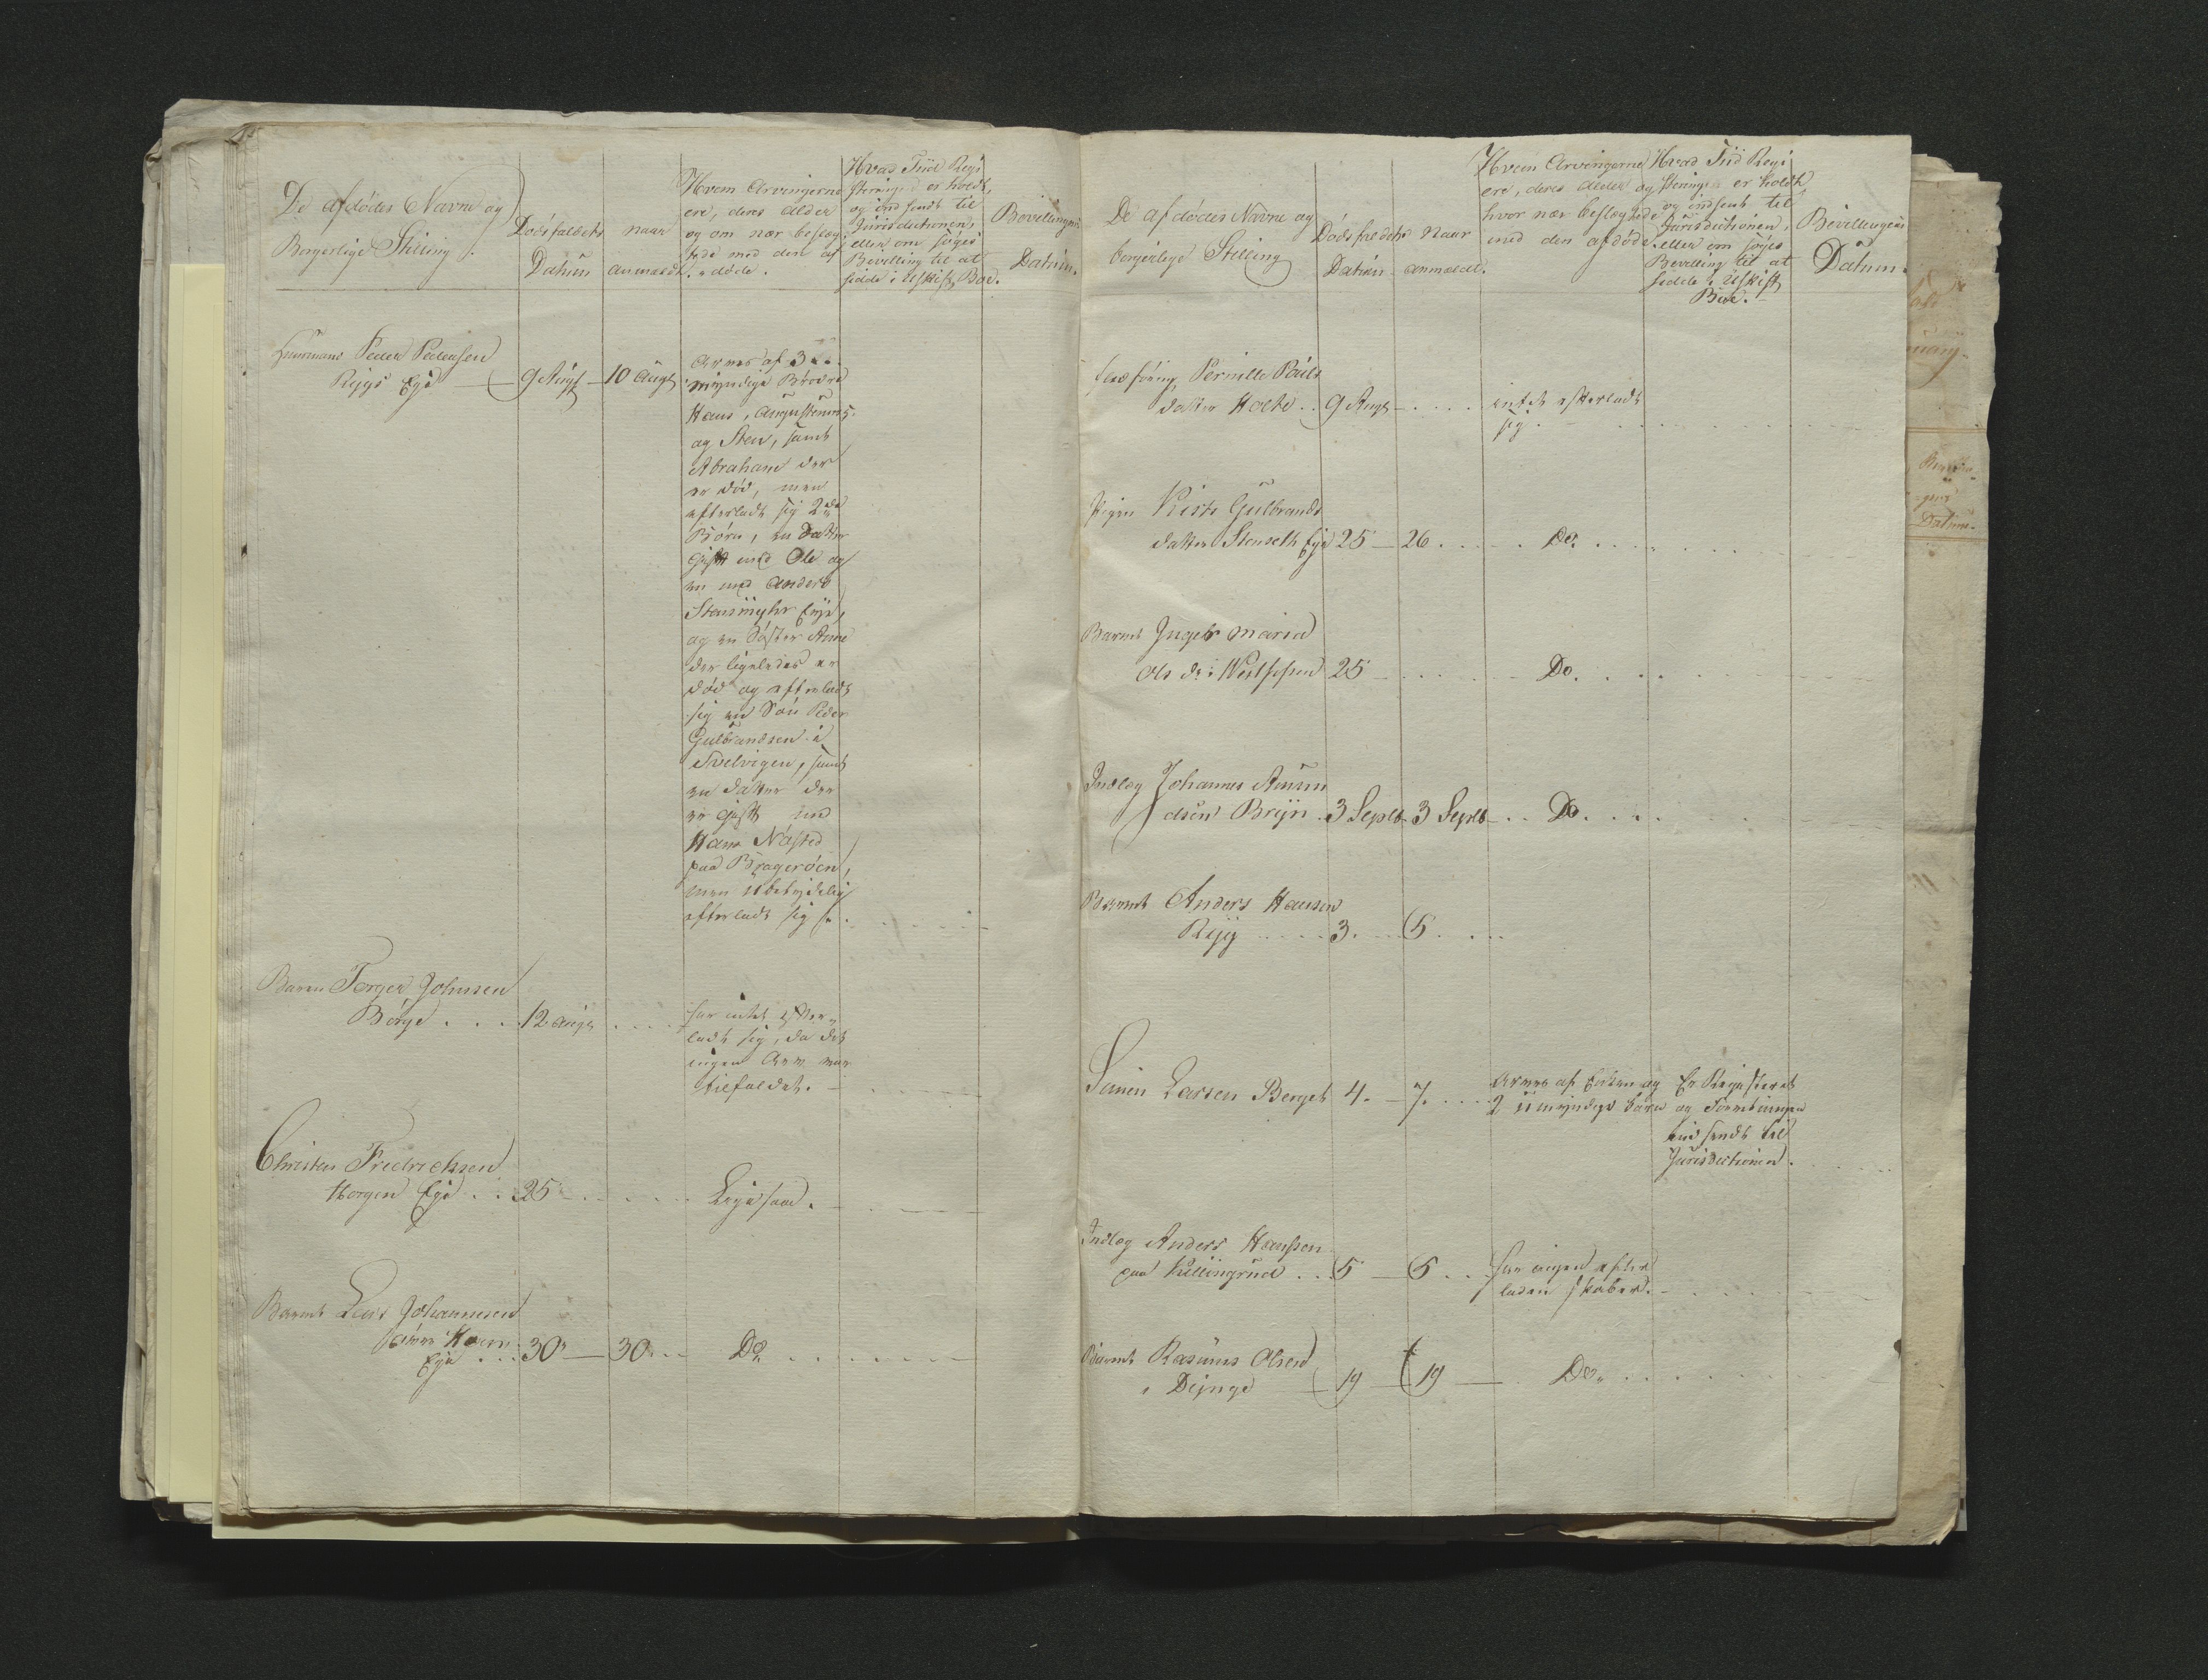 De afdödes Navne og
Borgerlige Stilling.
Dödsfaldets
Datum
naar
anmældt.
Hvem Arvingerne
ere, deres Alder
og om nær beslæg
tede med den af
döde.
Hvad Tiid Regi
steringen er holdt,
og indsendt til
Jurisdictionen,
eller om söges
Bevilling til at
sidde i Uskift Boe.
Bevillingens
Datum.
Huusmand Peder Pedersen
Rygs Eje 9 Augt 10 Augt
Arves af 3
myndige Brödre
Hans, Augustinus
og Sten, samt
Abraham der
er död, men
efterladt sig 2de
Börn, en Datter
gift med Ole og
en med Anders
Stensmyhr Eje,
og en Söster Anne
der ligeledes er
död og efterladt
sig en Sön Peder
Gulbrandsen i
Svelvigen, samt
en Datter der
er gift med
Hans Næsted
paa Bragerøen,
men ubetydelig
efterladt sig
Barnet Torger Johnsen
Börge 12 Augt
har intet efter
ladt sig, da det
ingen Arv var
tilfaldet.
Christen Fredrichsen
Horgen Eje 25 Ligesaa.
Barnet Lars Johannesen
Hoen
Eje 30 30 Do
De afdödes Navne og
borgerlige Stilling
Dödsfaldets
Datum
Naar
anmældt.
Hvem Arvingerne
ere, deres Alder og
hvor nær beslægtede
med den afdöde.
Hvad Tiid Regi
steringen er holdt
og indsent til
Jurisdictionen,
eller om söges
Bevilling til at
sidde i Uskift
Boe.
Bevillingens
Datum.
Pernille Pouls
datter Holte 9 Augt intet efterladt
sig.
Pigen Kisti Gulbrands
datter Stenseth Eje 25 26 Do.
Barnet Ingebr Maria
Ols dr i 25 Do.
Indlog Johannes Amun
dsen Bryn 3 Septb 3 Septb Do.
Barnet Anders Hansen
Ryg 3. 5
Simen Larsen Berget 4. 7.
Arves af Enken og
2 umyndige börn
Er Registeret
og Forretningen
indsendt til
Jurisdictionen.
Indlog Anders Hanssen
paa Killingrud 5 6 har ingen efter
ladenskaber.
Barnet Rasmus Olsen
i Dynge 19 19 Do
Datum.